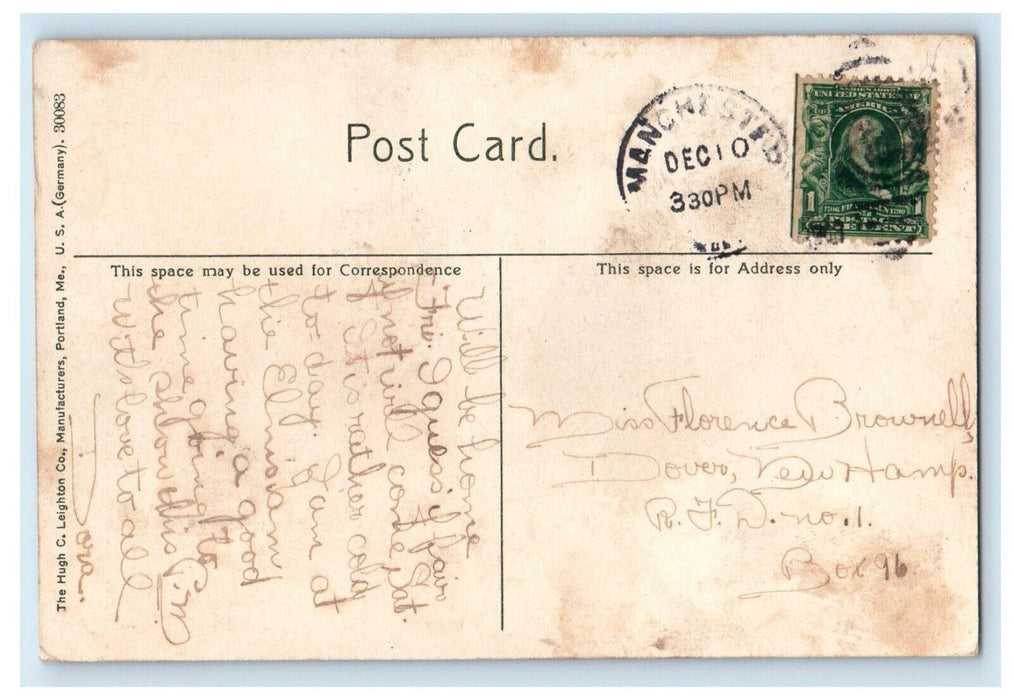 Post Card.
MANCHESTER
DEC 10
330PM
SERIES 1902
UNITED STATES OF
AMERICA
1 1
1706 FRANKLIN 1790
POSTAGE
ONE CENT
This space may be used for Correspondence
This space is for Address only
The Hugh C. Leighton Co., Manufacturers, Portland, Me., U. S. A. (Germany). 30083
Will be home
Fri. I guess if fair
if not will come Sat.
It is rather cold
to-day. I am at
the Elmsian
having a good
time going to
the show this P.M
with love to all
Dora.
Miss Florence Brownell,
Dover, New Hamp.
R. F. D. no. 1.
Box 96.